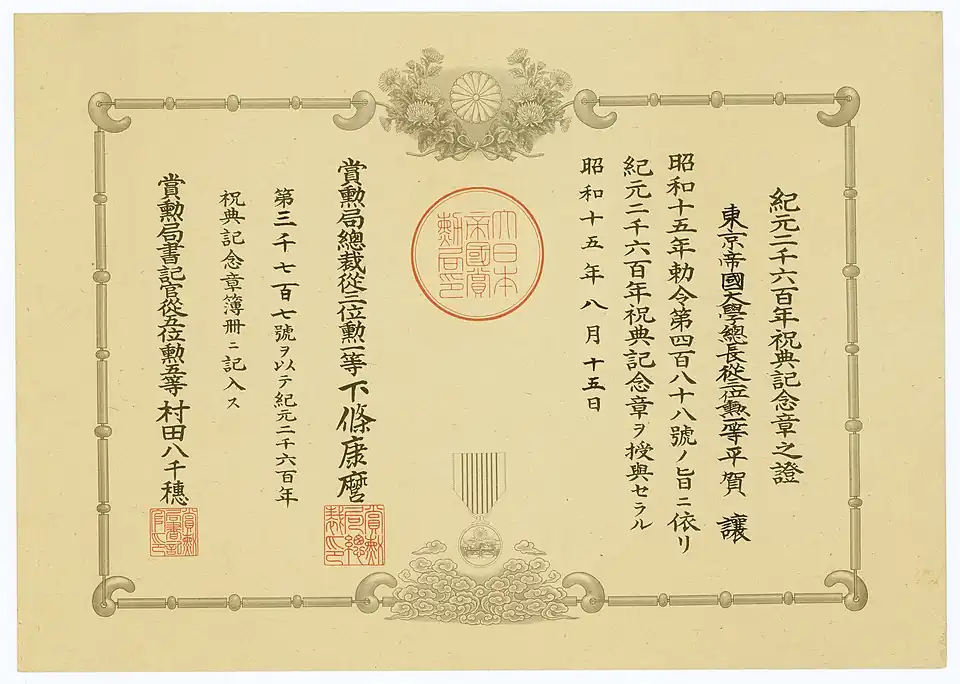 紀元二千六百年祝典記念章之證
東京帝國大學總長從三位勲一等平賀 讓
昭和十五年勅令第四百八十八號ノ旨ニ依リ
紀元二千六百年祝典記念章ヲ授與セラル
昭和十五年八月十五日
大日本
帝國賞
勲局印
賞勲局總裁從三位勲一等下條康麿
賞勲
局總
裁印
第三千七百七號ヲ以テ紀元二千六百年
祝典記念章簿册ニ記入ス
賞勲局書記官從五位勲五等村田八千穗
賞勲
局書記
官印